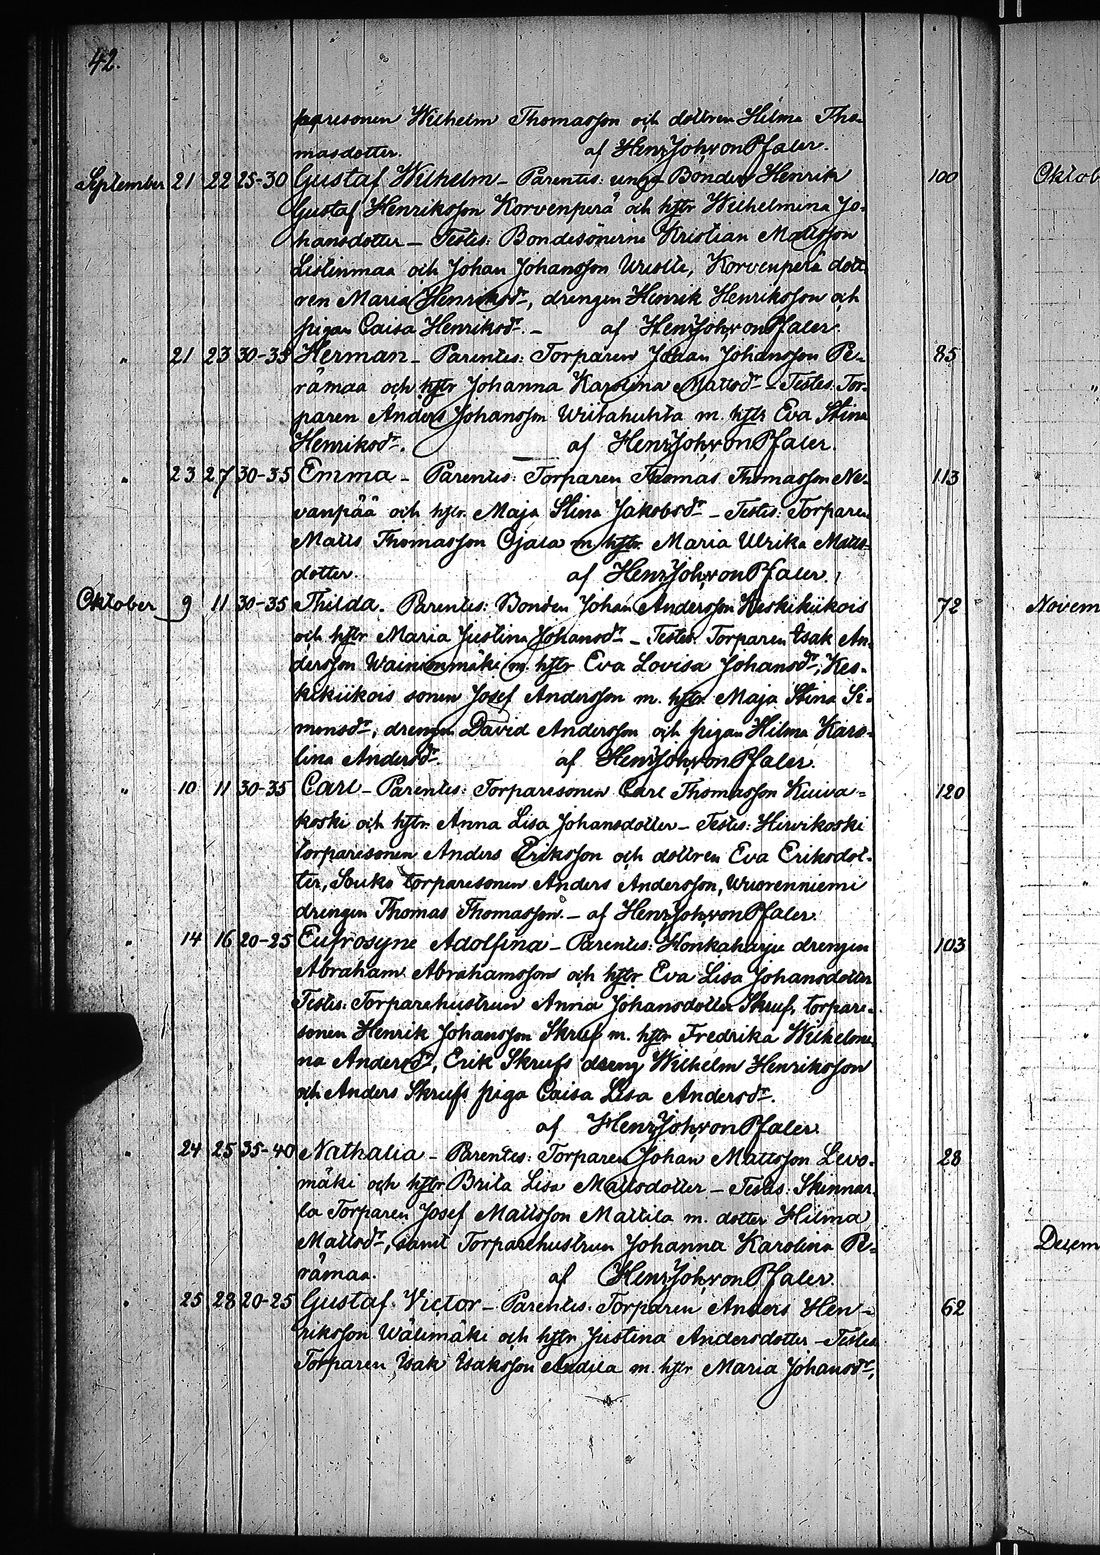 42.
paresonen Wilhelm Thomasson och dottren Hilma Tho-
masdotter. af HenrJoh,vonPfaler.
September 21 22 25-30 Gustaf Wilhelm - Parentes: unga Bonden Henrik 100
Gustaf Henriksson Korvenperä och hstr Wilhelmina Jo-
hansdotter - Testes: Bondesönerne Kristian Mattsson
Listinmaa och Johan Johansson Uristle, Korvenperä dott-
ren Maria Henriksdr, drengen Henrik Henriksson och
pigan Caisa Henriksdr. - af HenrJoh,vonPfaler.
" 21 23 30-35 Herman - Parentes: Torparen Johan Johansson Pe- 85
rämaa och hstr Johanna Karolina Mattsdr - Testes: Tor-
paren Anders Johansson Wiitahuhta m. hstr Eva Stina
Henriksdr. af HenrJoh,vonPfaler.
" 23 27 30-35 Emma - Parentes: Torparen Thomas Thomasson Ne- 113
vanpää och hstr. Maja Stina Jakobsdr - Testes: Torparen
Matts Thomasson Ojala m. hstr. Maria Ulrika Matts-
dotter. af HenrJoh,vonPfaler.
Oktober 9 11 30-35 Thilda. Parentes: Bonden Johan Andersson Keskikiikois 72
och hstr Maria Justina Johansdr - Testes: Torparen Isak An-
dersson Wainionmäki m. hstr Eva Lovisa Johansdr, Kes-
kikiikois sonen Josef Andersson m. hstr. Maja Stina Si-
monsdr, drengen David Andersson och pigan Hilma Karo-
lina Andersdr. af HenrJoh,vonPfaler.
" 10 11 30-35 Carl - Parentes: Torparesonen Carl Thomasson Kuiva= 120
koski och hstr. Anna Lisa Johansdotter - Testes: Hirvikoski
torparesonen Anders Eriksson och dottren Eva Eriksdot-
ter, Souko torparesonen Anders Andersson, Wuorenniemi
drengen Thomas Thomasson. - af HenrJoh,vonPfaler.
" 14 16 20-25 Eufrosyne Adolfina - Parentes: Honkaharju drengen 103
Abraham Abrahamsson och hstr Eva Lisa Johansdotter
Testes: Torparehustrun Anna Johansdotter Skruf, torpare-
sonen Henrik Johansson Skruf m. hstr Fredrika Wilhelmi-
na Andersdr, Erik Skrufs dreng Wilhelm Henriksson
och Anders Skrufs piga Caisa Lisa Andersdr.
af HenrJoh,vonPfaler
" 24 25 35-40 Nathalia - Parentes: Torparen Johan Mattsson Levo- 28
mäki och hstr Brita Lisa Mattsdotter - Testes: Skinnar-
la Torparen Josef Mattsson Mattila m. dotter Hilma
Mattsdr, samt Torparehustrun Johanna Karolina Pe-
rämaa. af HenrJoh,vonPfaler.
" 25 28 20-25 Gustaf Victor - Parentes: Torparen Anders Hen- 62
riksson Wälimäki och hstr Justina Andersdotter - Testes
Torparen Isak Isaksson Andila m. hstr Maria Johansdr,
Oktob
"
Novem
"
Decem